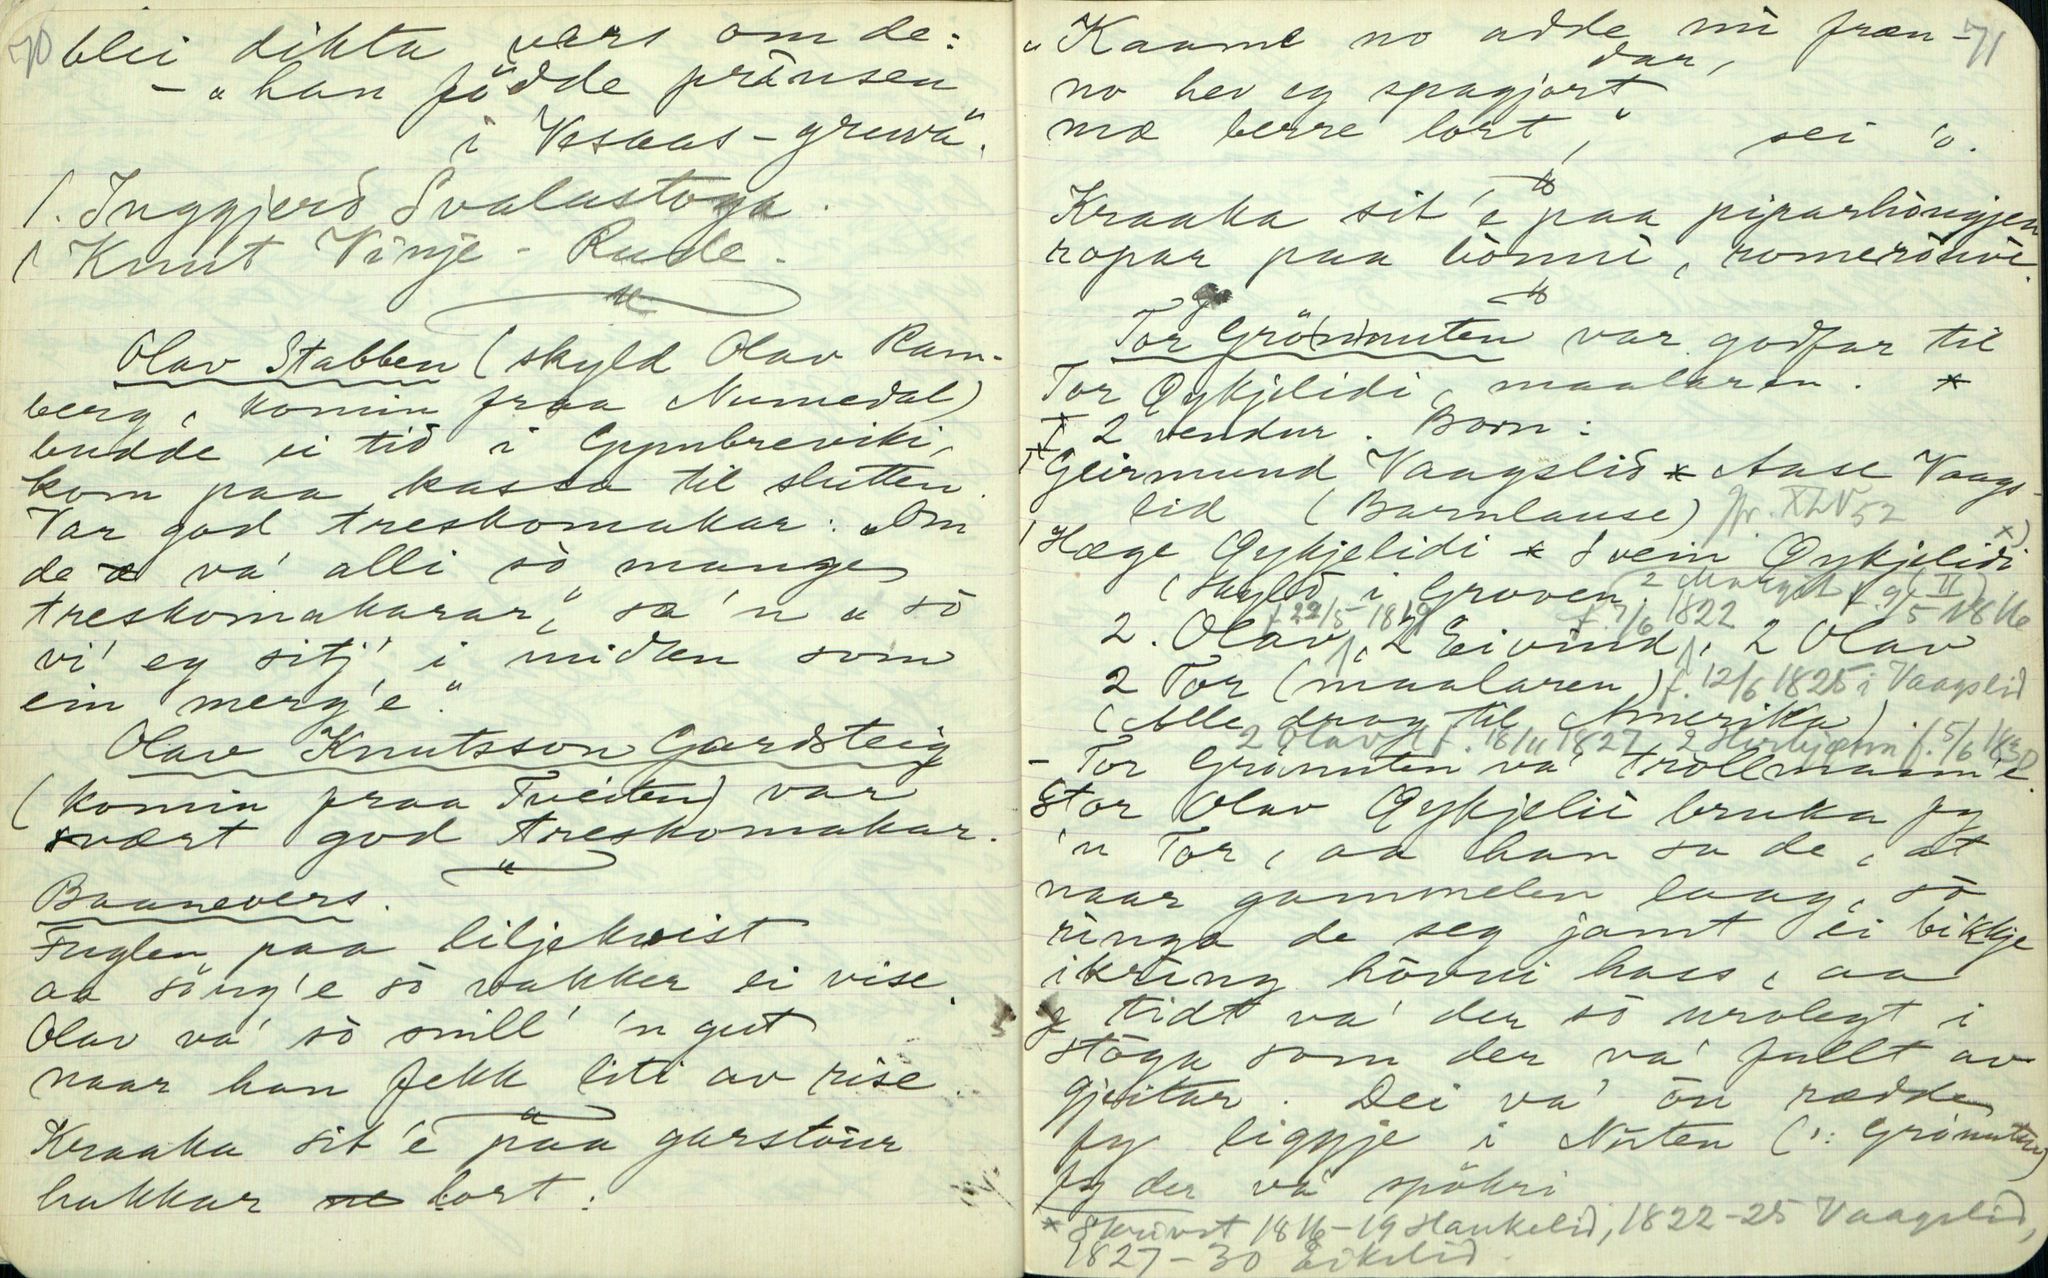 70
blei dikta vers om de:
– „han födde prinsen
i Vesaas-gruvå".
1. Inggjerd Svalastoga.
1 Knut Vinje-Rude.
"
Olav Stabben (skyld Olav Ram-
berg, komin fraa Numedal)
budde ei tid i Gymbreviki,
kom paa kassa til slutten.
Var god treskomakar: „Om
de va' alli sò mange
treskomakarar", sa 'n „sò
vi' eg sitj' i midten som
ein merg'e."
Olav Knutsson Gardsteig
(komin fraa Tveiten) var
svært god treskomakar.
"
Baanevers.
Fuglen paa liljekvist
aa söng'e sò vakker ei vise.
Olav va' sò snill' 'n gut
naar han fekk liti av rise.
"
Kraaka sit'e paa garstaur
hakkar lort.
71
„Kaame no adde mi fræn-
dar,
no hev eg spagjort
mæ berre lort," sei 'o.
"
Kraaka sit'e paa piparhòugjen
ropar paa
"
Tor Grönnuten var godfar til
Tor Øykjelidi, maalaren. *
2 vendur. Born:
1 Geirmund Vaagslid * Aase Vaags-
lid (Barnlause) Jfr. XLV 52
1 Hæge Øykjelidi * Svein Øykjelidi x)
(skyld i Groven. 2 Margit f. 9/5 1816 (II)
f. 22/5 1819 f. 7/6 1822
2. Olav, 2 Eivind, 2 Olav
2 Tor (maalaren) f. 12/6 1825 i Vaagslid
(Alle drog til Amerika).
2 Olav f. 18/11 1827 2 f. 5/6 1830
– Tor Grönuten va' trollmann'e.
Stor Olav Øykjelii bruka fy
'n Tor, aa han sa de, at
naar gammelen laag, sò
ringa de seg jamt ei bikkje
ikring hòvui hass, aa
tidt va' der sò urolegt i
stòga som der va' fullt av
gjeitar. Dei va' òu rædde
fy liggje i Nuten (: Grönuten)
fy der va' spökri
* Skrivst 1816–19 Haukelid, 1822–25 Vaagslid,
1827–30 Eikelid.